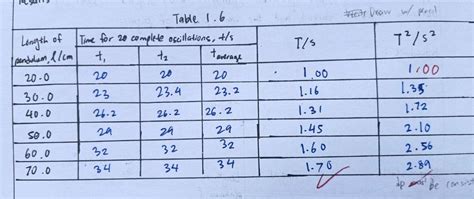 Table 1.6
Draw w/ pencil
Length of pendulum, l/cm Time for 20 complete oscillations, t/s T/s T²/s²
t₁ t₂ t average
20.0 20 20 20 1.00 1.00
30.0 23 23.4 23.2 1.16 1.35
40.0 26.2 26.2 26.2 1.31 1.72
50.0 29 29 29 1.45 2.10
60.0 32 32 32 1.60 2.56
70.0 34 34 34 1.70 2.89
dp must be consist